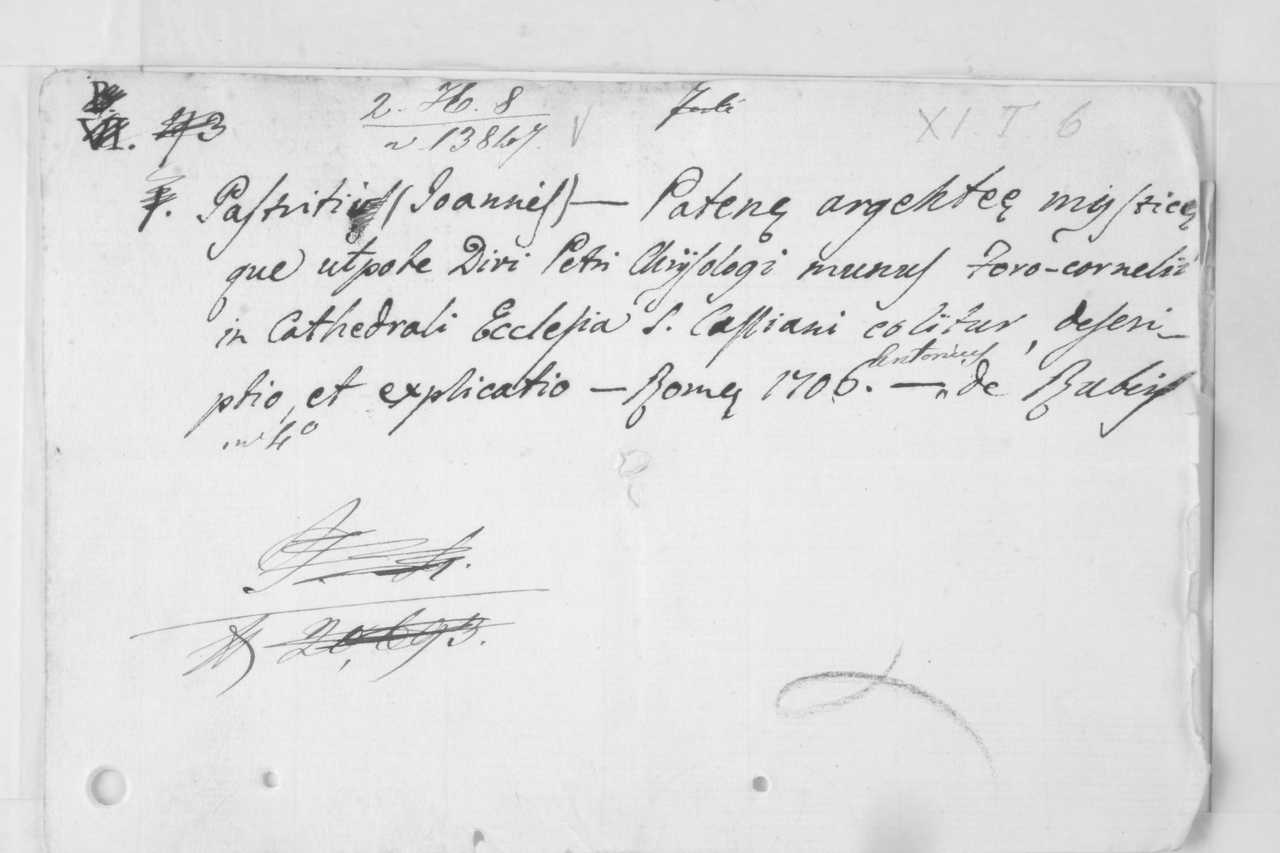 2. H. 8
XI. T. 6
n. 13847.
Pastritius (Joannes) — Patenę argekteę mysticę
que utpote Divi Petri Chrysologi munus Foro-cornelii
in Cathedrali Ecclesia S. Cassiani colitur, descri-
ptio, et explicatio — Romę 1706. — Antonius de Rubeis
in 4º
20,693.